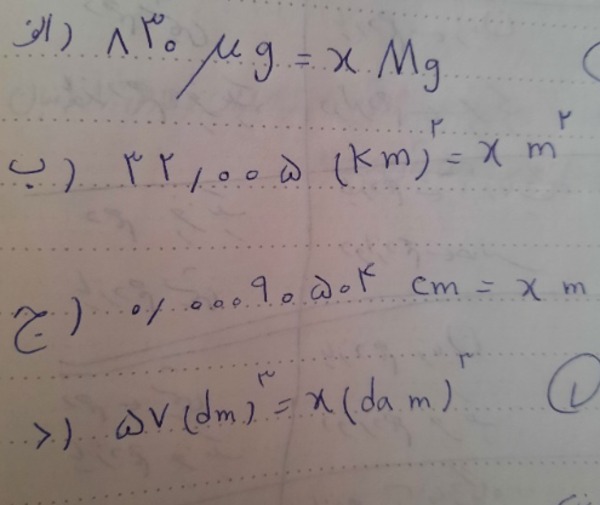 الف) ۸۳۰ μg = x Mg
ب) ۳۲,۰۰۵ (km)^۲ = x m^۲
ج) ۰,۰۰۰۹۰۵۰۴ cm = x m
د) ۵۷ (dm)^۳ = x (da m)^۳